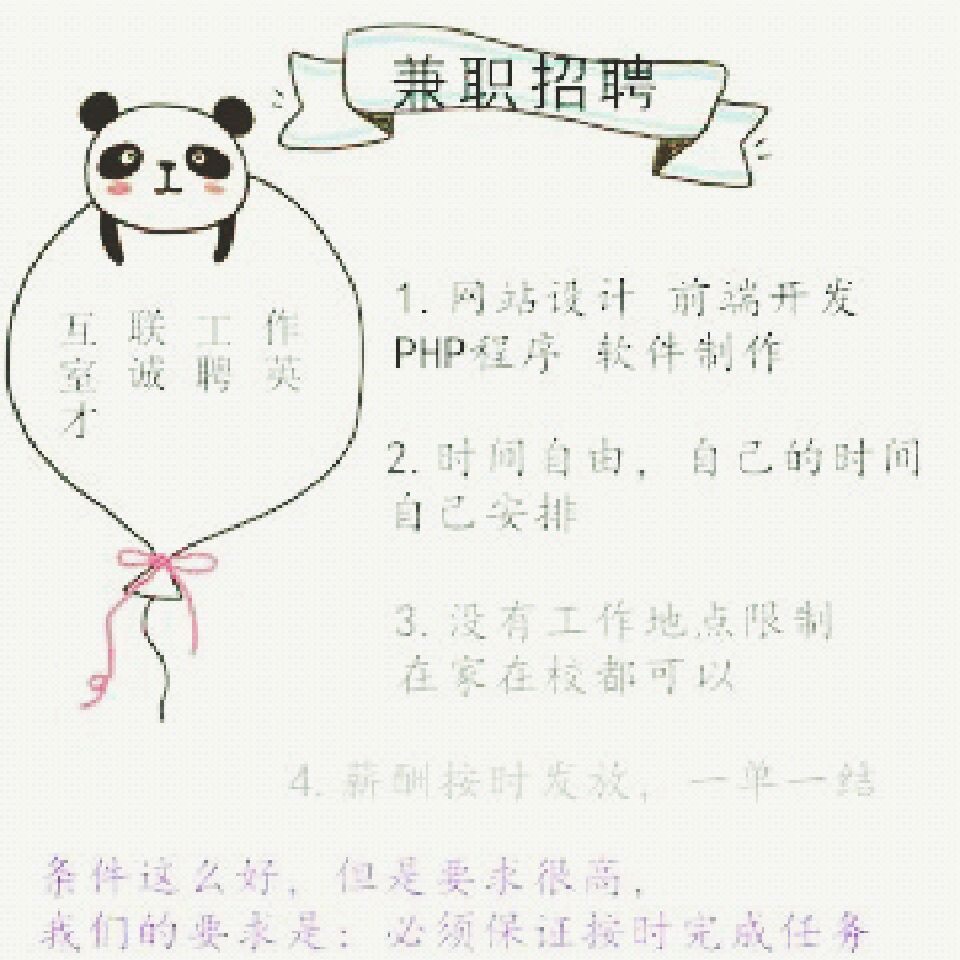 兼职招聘
互联工作
室诚聘英
才
1. 网站设计 前端开发
PHP程序 软件制作
2. 时间自由，自己的时间
自己安排
3. 没有工作地点限制
在家在校都可以
4. 薪酬按时发放，一单一结
条件这么好，但是要求很高，
我们的要求是：必须保证按时完成任务